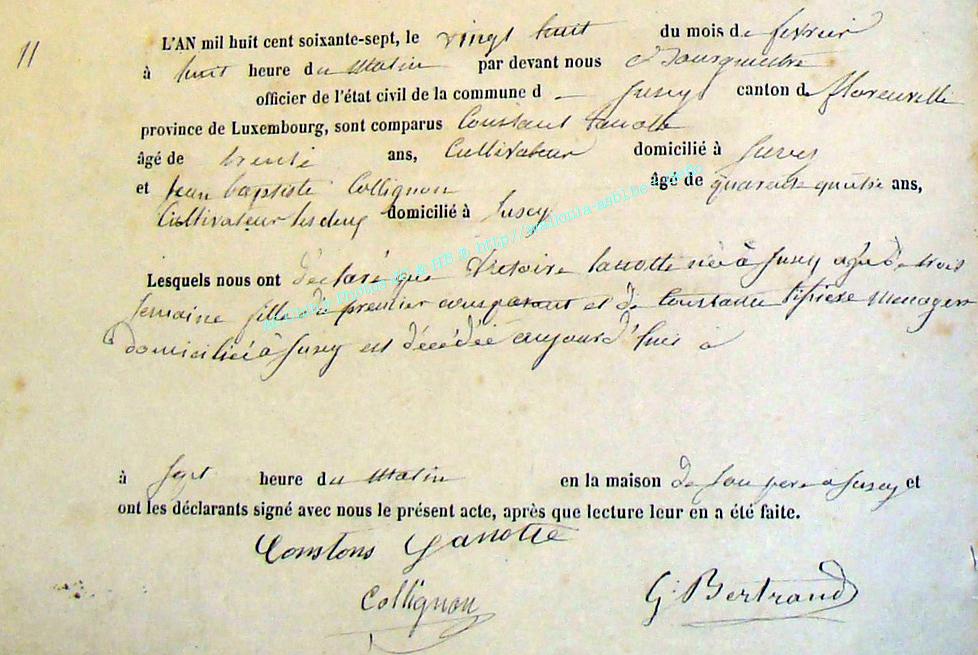 11
L'AN mil huit cent soixante-sept, le vingt huit du mois de fevrier
à huit heure du Matin par devant nous
officier de l'état civil de la commune d Jusey canton de florenville
province de Luxembourg, sont comparus Constant Lanotte
âgé de trente ans, Cultivateur domicilié à Jusey
et Jean baptiste Collignon âgé de quarante quatre ans,
Cultivateur les deux domicilié à Jusey
Lesquels nous ont déclaré que Victoire Lanotte née à Jusey agée de trois
semaine fille du premier comparant et de Constance menagere
domiciliée à Jusey est décédée aujourd'huis à
à Sept heure du Matin en la maison de son pere à Jusey et
ont les déclarants signé avec nous le présent acte, après que lecture leur en a été faite.
Constans Lanotte
Collignon
G. Bertrand
http://wallonia-asbl.be